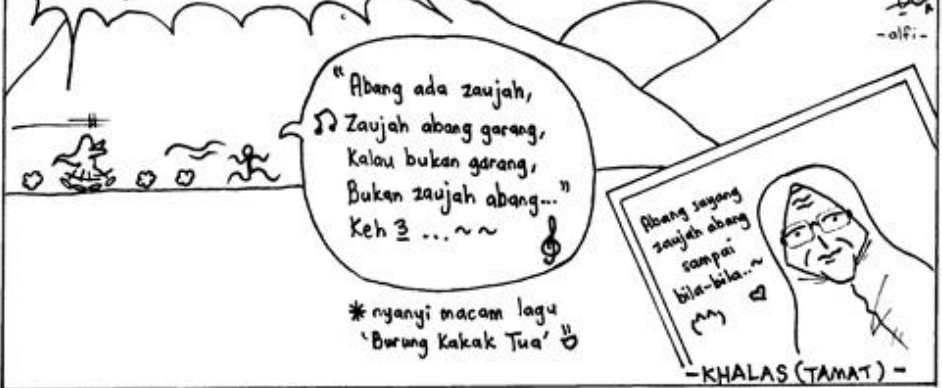 -alfi-
"Abang ada zaujah,
Zaujah abang garang,
Kalau bukan garang,
Bukan zaujah abang..."
Keh 3 ...~~
* nyanyi macam lagu
'Burung Kakak Tua'
Abang sayang
zaujah abang
sampai
bila-bila..~
(^^)
-KHALAS (TAMAT)-